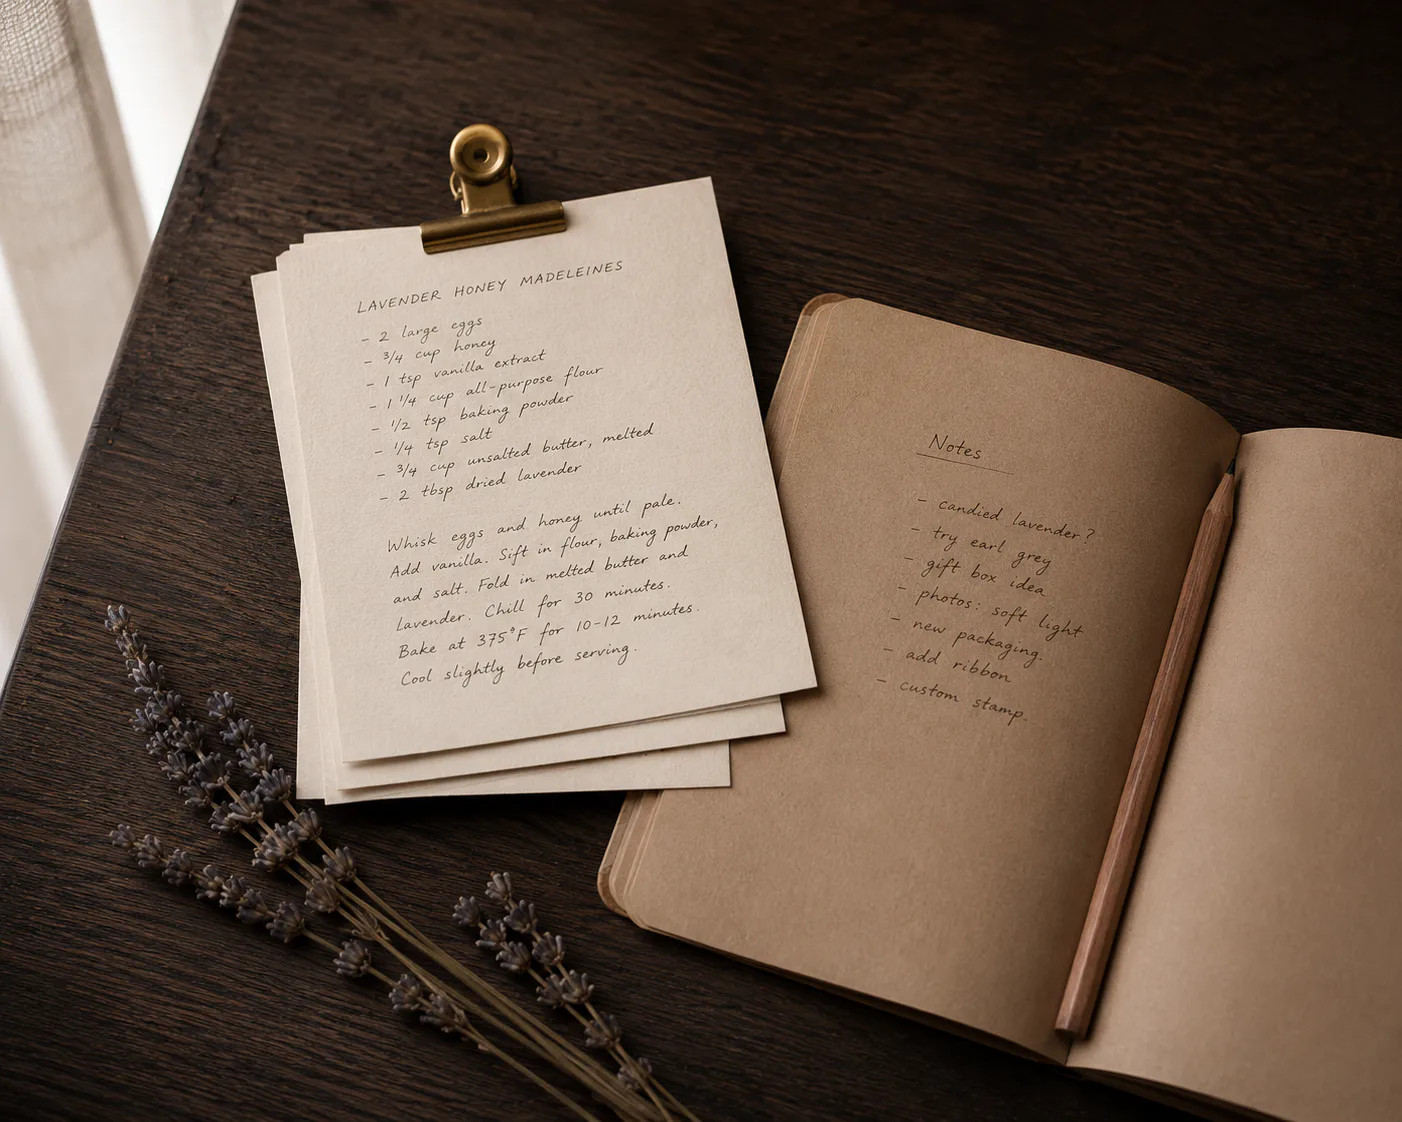 LAVENDER HONEY MADELEINES
- 2 large eggs
- 3/4 cup honey
- 1 tsp vanilla extract
- 1 1/4 cup all-purpose flour
- 1/2 tsp baking powder
- 1/4 tsp salt
- 3/4 cup unsalted butter, melted
- 2 tbsp dried lavender
Whisk eggs and honey until pale.
Add vanilla. Sift in flour, baking powder,
and salt. Fold in melted butter and
lavender. Chill for 30 minutes.
Bake at 375°F for 10-12 minutes.
Cool slightly before serving.
Notes
- candied lavender?
- try earl grey
- gift box idea
- photos: soft light
- new packaging.
- add ribbon
- custom stamp.